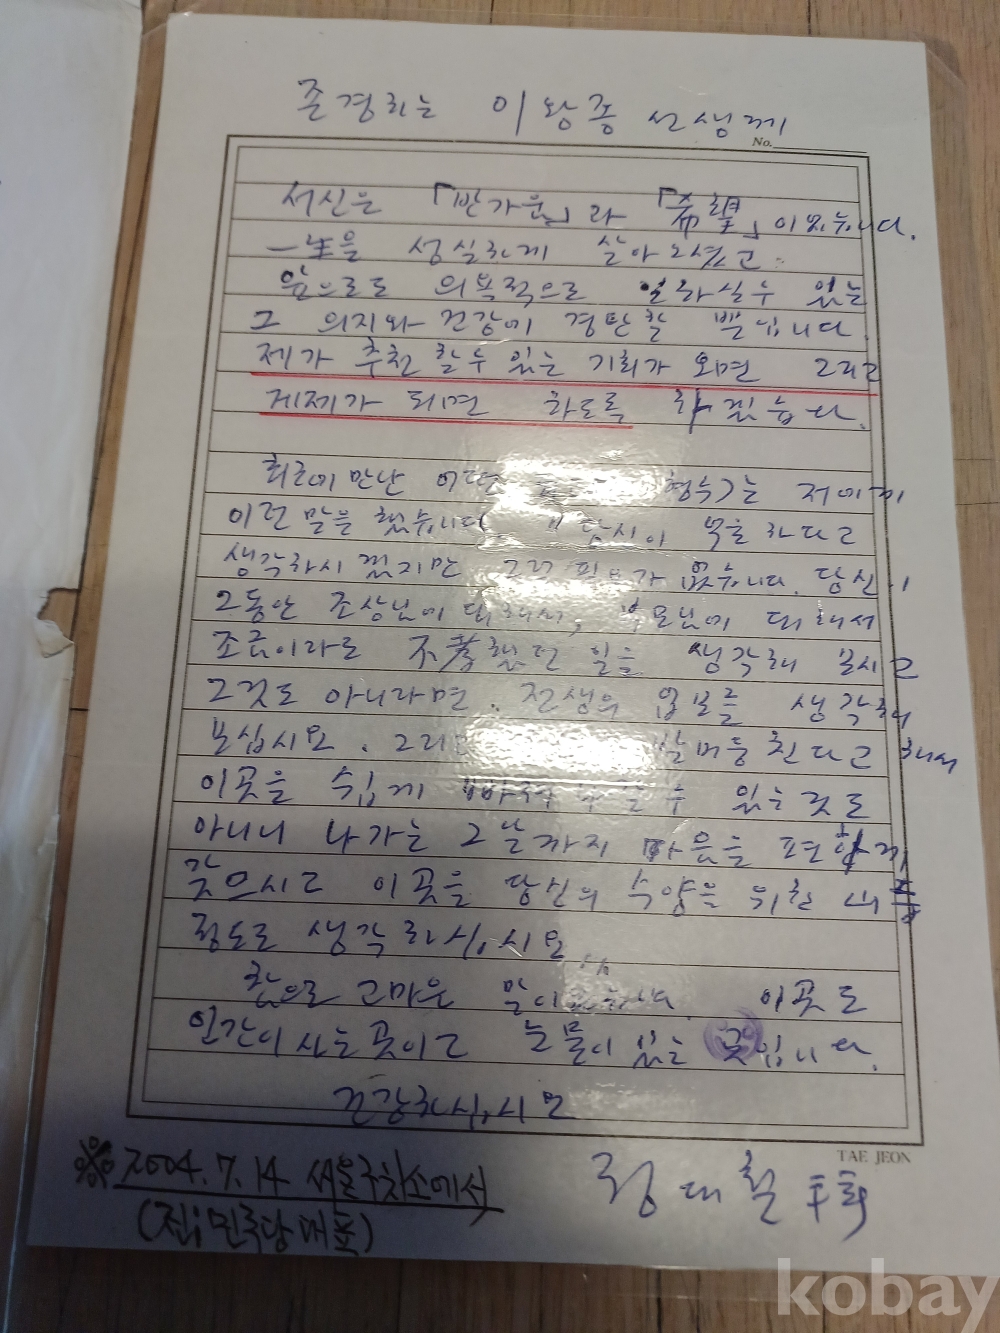 존경하는 이왕종 선생께
No.
서신은 「반가움」과 「希望」이었습니다.
一生을 성실하게 살아오셨고
앞으로도 의욕적으로 일하실 수 있는
그 의지와 건강에 경탄할 뿐입니다.
제가 추천 할 수 있는 기회가 오면 그리고
게제가 되면 하도록 하겠습니다.
최근에 만난 어떤 는 저에게
이런 말을 했습니다. 당신이 억울하다고
생각하시겠지만 그럴 필요가 없습니다. 당신이
그동안 조상님에 대해서, 부모님에 대해서
조금이라도 不孝했던 일을 생각해 보시고
그것도 아니라면, 전생의 업보를 생각해
보십시요. 그리고 발버둥친다고 해서
이곳을 쉽게 수 있는 것도
아니니 나가는 그날까지 마음을 편하게
갖으시고 이곳을 당신의 수양을 위한
정도로 생각하십시요"
참으로 고마운 말이 이곳도
인간이 사는 곳이고 눈물이 있는 곳입니다.
건강하십시요
TAE JEON
정대철 拜
※ 2004. 7. 14 서울구치소에서
(전; 민주당 대표)
kobay